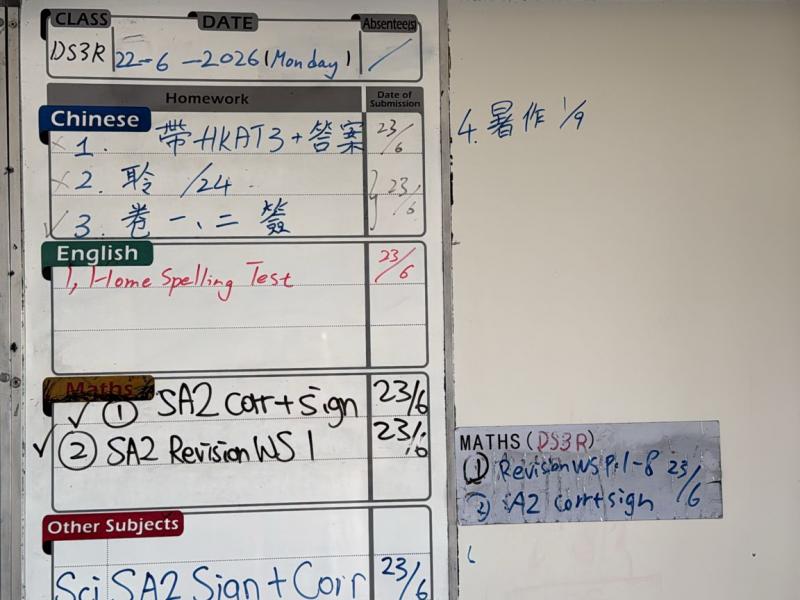 CLASS DATE Absentee(s)
DS3R 22-6-2026(Monday) /
Homework Date of Submission
Chinese
1. 帶HKAT3+答案 23/6
4. 暑作 1/9
2. 聆 /24 23/6
3. 卷一、二簽
English
1, Home Spelling Test 23/6
Maths
① SA2 corr+sign 23/6
② SA2 Revision WS 1 23/6
MATHS (DS3R)
① Revision WS P.1-8 23/6
② SA2 corr+sign
Other Subjects
Sci SA2 Sign+Corr 23/6